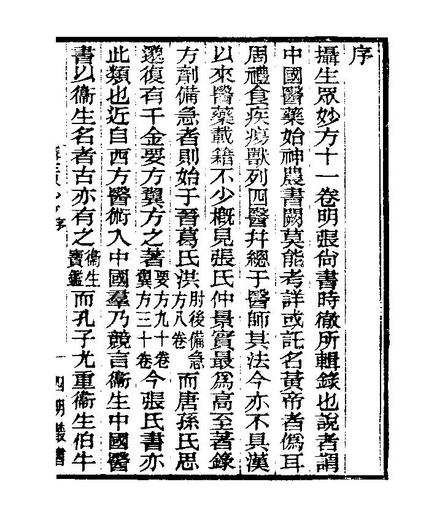 序
攝生眾妙方十一卷明張尙書時徹所輯錄也說者謂
中國醫藥始神農書闕莫能考詳或託名黃帝者僞耳
周禮食疾瘍獸列四醫幷總于醫師其法今亦不具漢
以來醫藥載籍不少槪見張氏仲景實最爲高至著錄
方劑備急者則始于晉葛氏洪肘後備急方八卷而唐孫氏思
邈復有千金要方翼方之著要方九十卷翼方三十卷今張氏書亦
此類也近自西方醫術入中國羣乃競言衞生中國醫
書以衞生名者古亦有之衞生寶鑑而孔子尤重衞生伯牛
序 一 四明叢書